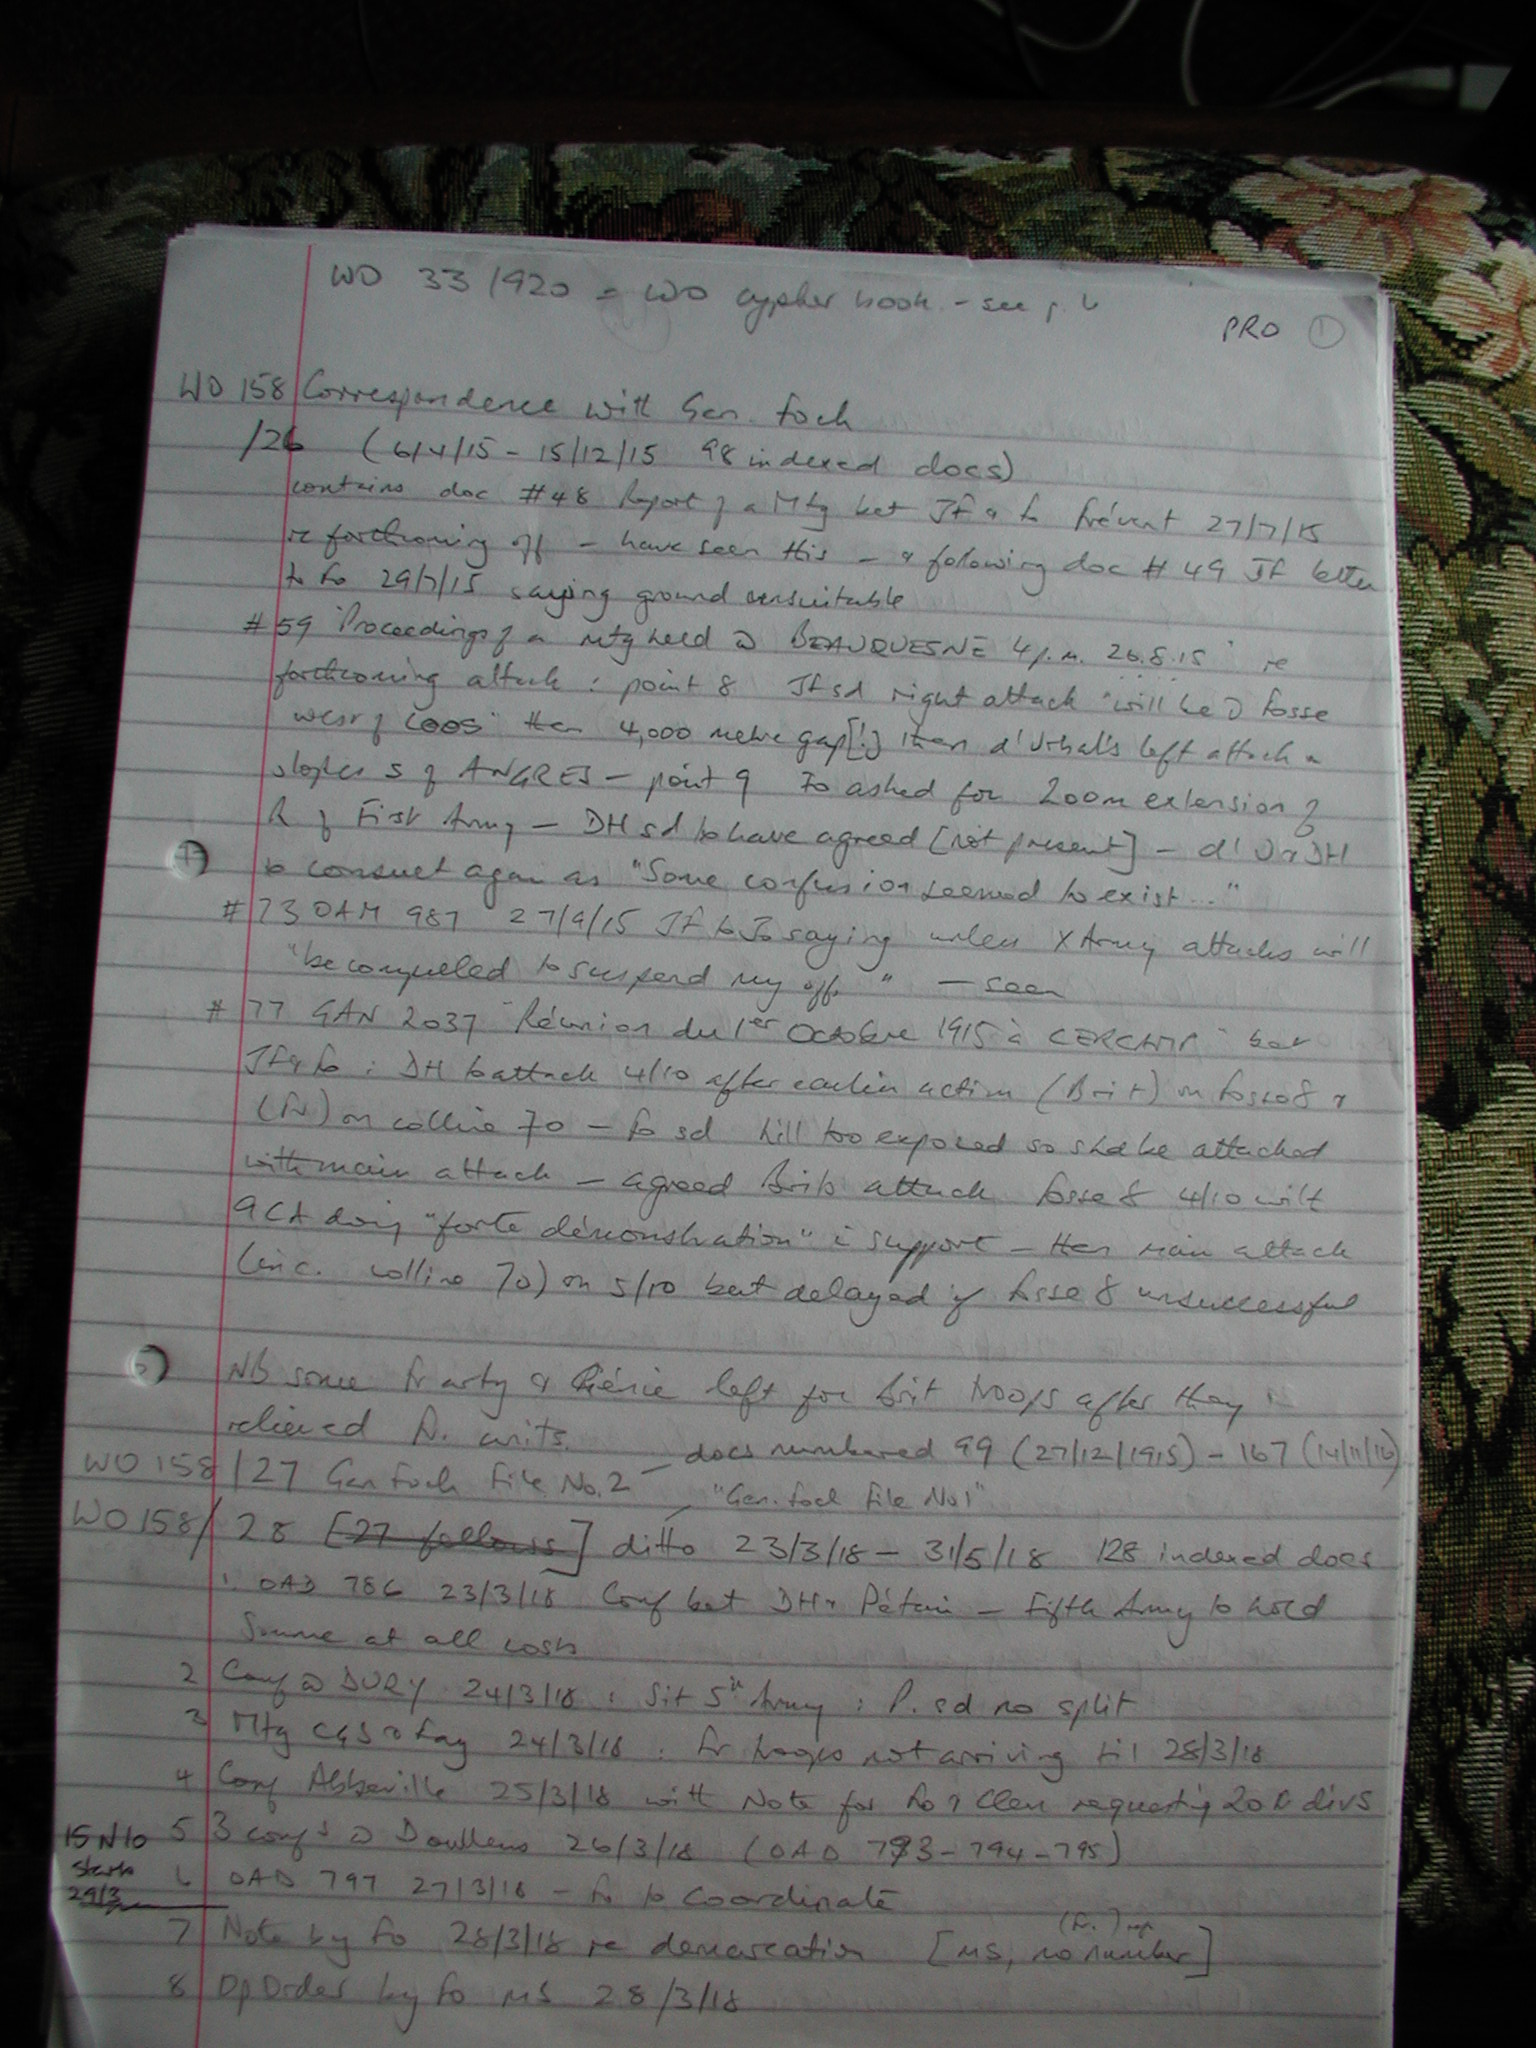 WO 33/920 = WO cypher book - see p. 6
PRO 1
WO 158 Correspondence with Gen. Foch
/26 (6/4/15 - 15/12/15 98 indexed docs)
contains doc #48 Report of a Mtg bet Jf & Fo Frévent 27/7/15
re forthcoming off - have seen this - & following doc #49 Jf letter
to Fo 29/7/15 saying ground unsuitable
#59 "Proceedings of a mtg held @ BEAUQUESNE 4 p.m. 26.8.15" re
forthcoming attack : point 8 Jf sd right attack "will be @ fosse
west of LOOS" then 4,000 metre gap [!] then d'Urbal's left attack on
slopes S of ANGRES - point 9 Fo asked for 200m extension of
R of First Army - DH sd to have agreed [not present] - d'U & DH
to consult again as "Some confusion seemed to exist..."
#73 OAM 987 27/9/15 Jf to Jo saying unless X Army attacks will
"be compelled to suspend my off." - seen
#77 GAN 2037 "Réunion du 1er Octobre 1915 à CERCAMP" bet
Jf & Fo : DH to attack 4/10 after earlier action (Brit) on fosse 8 &
(Fr) on colline 70 - Fo sd hill too exposed so shd be attacked
with main attack - agreed Brits attack fosse 8 4/10 with
9 CA doing "forte démonstration" in support - then main attack
(inc. colline 70) on 5/10 but delayed if fosse 8 unsuccessful
NB some Fr arty & Génie left for Brit troops after they
relieved Fr. units.
WO 158 /27 Gen Foch File No. 2 - docs numbered 99 (27/12/1915) - 167 (14/11/16)
"Gen. Foch File No 1"
WO 158/ 28 [27 follows] ditto 23/3/18 - 31/5/18 128 indexed docs
1. OAD 786 23/3/18 Conf bet DH & Pétain - Fifth Army to hold
Somme at all costs
2 Conf @ DURY 24/3/18 : Sit 5th Army : P. sd no split
3 Mtg CGS & Fay 24/3/18 : Fr troops not arriving til 28/3/18
4 Conf Abbeville 25/3/18 with Note for Fo & Clem requesting 20 Fr divs
5 3 confs @ Doullens 26/3/18 (OAD 793 - 794 - 795)
15 N 10
starts
29/3
6 OAD 797 27/3/18 - Fo to coordinate
7 Note by Fo 28/3/18 re demarcation [MS, (Fr.) no number]
8 Op Order by Fo MS 28/3/18